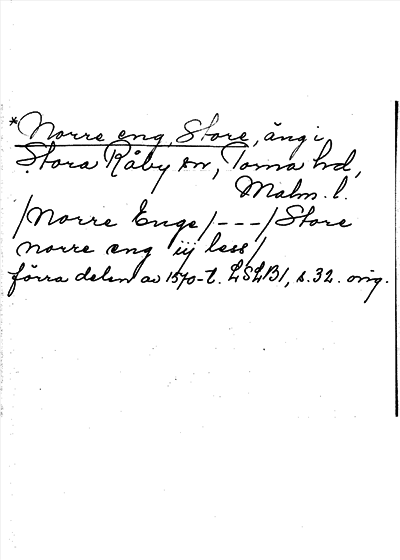 *Norre eng, Store, äng i
Stora Råby sn, Torna hd,
Malm. l.
/Norre Enge/---/Store
norre eng iij less/
förra delen av 1570-t. LSLB1, s. 32. orig.